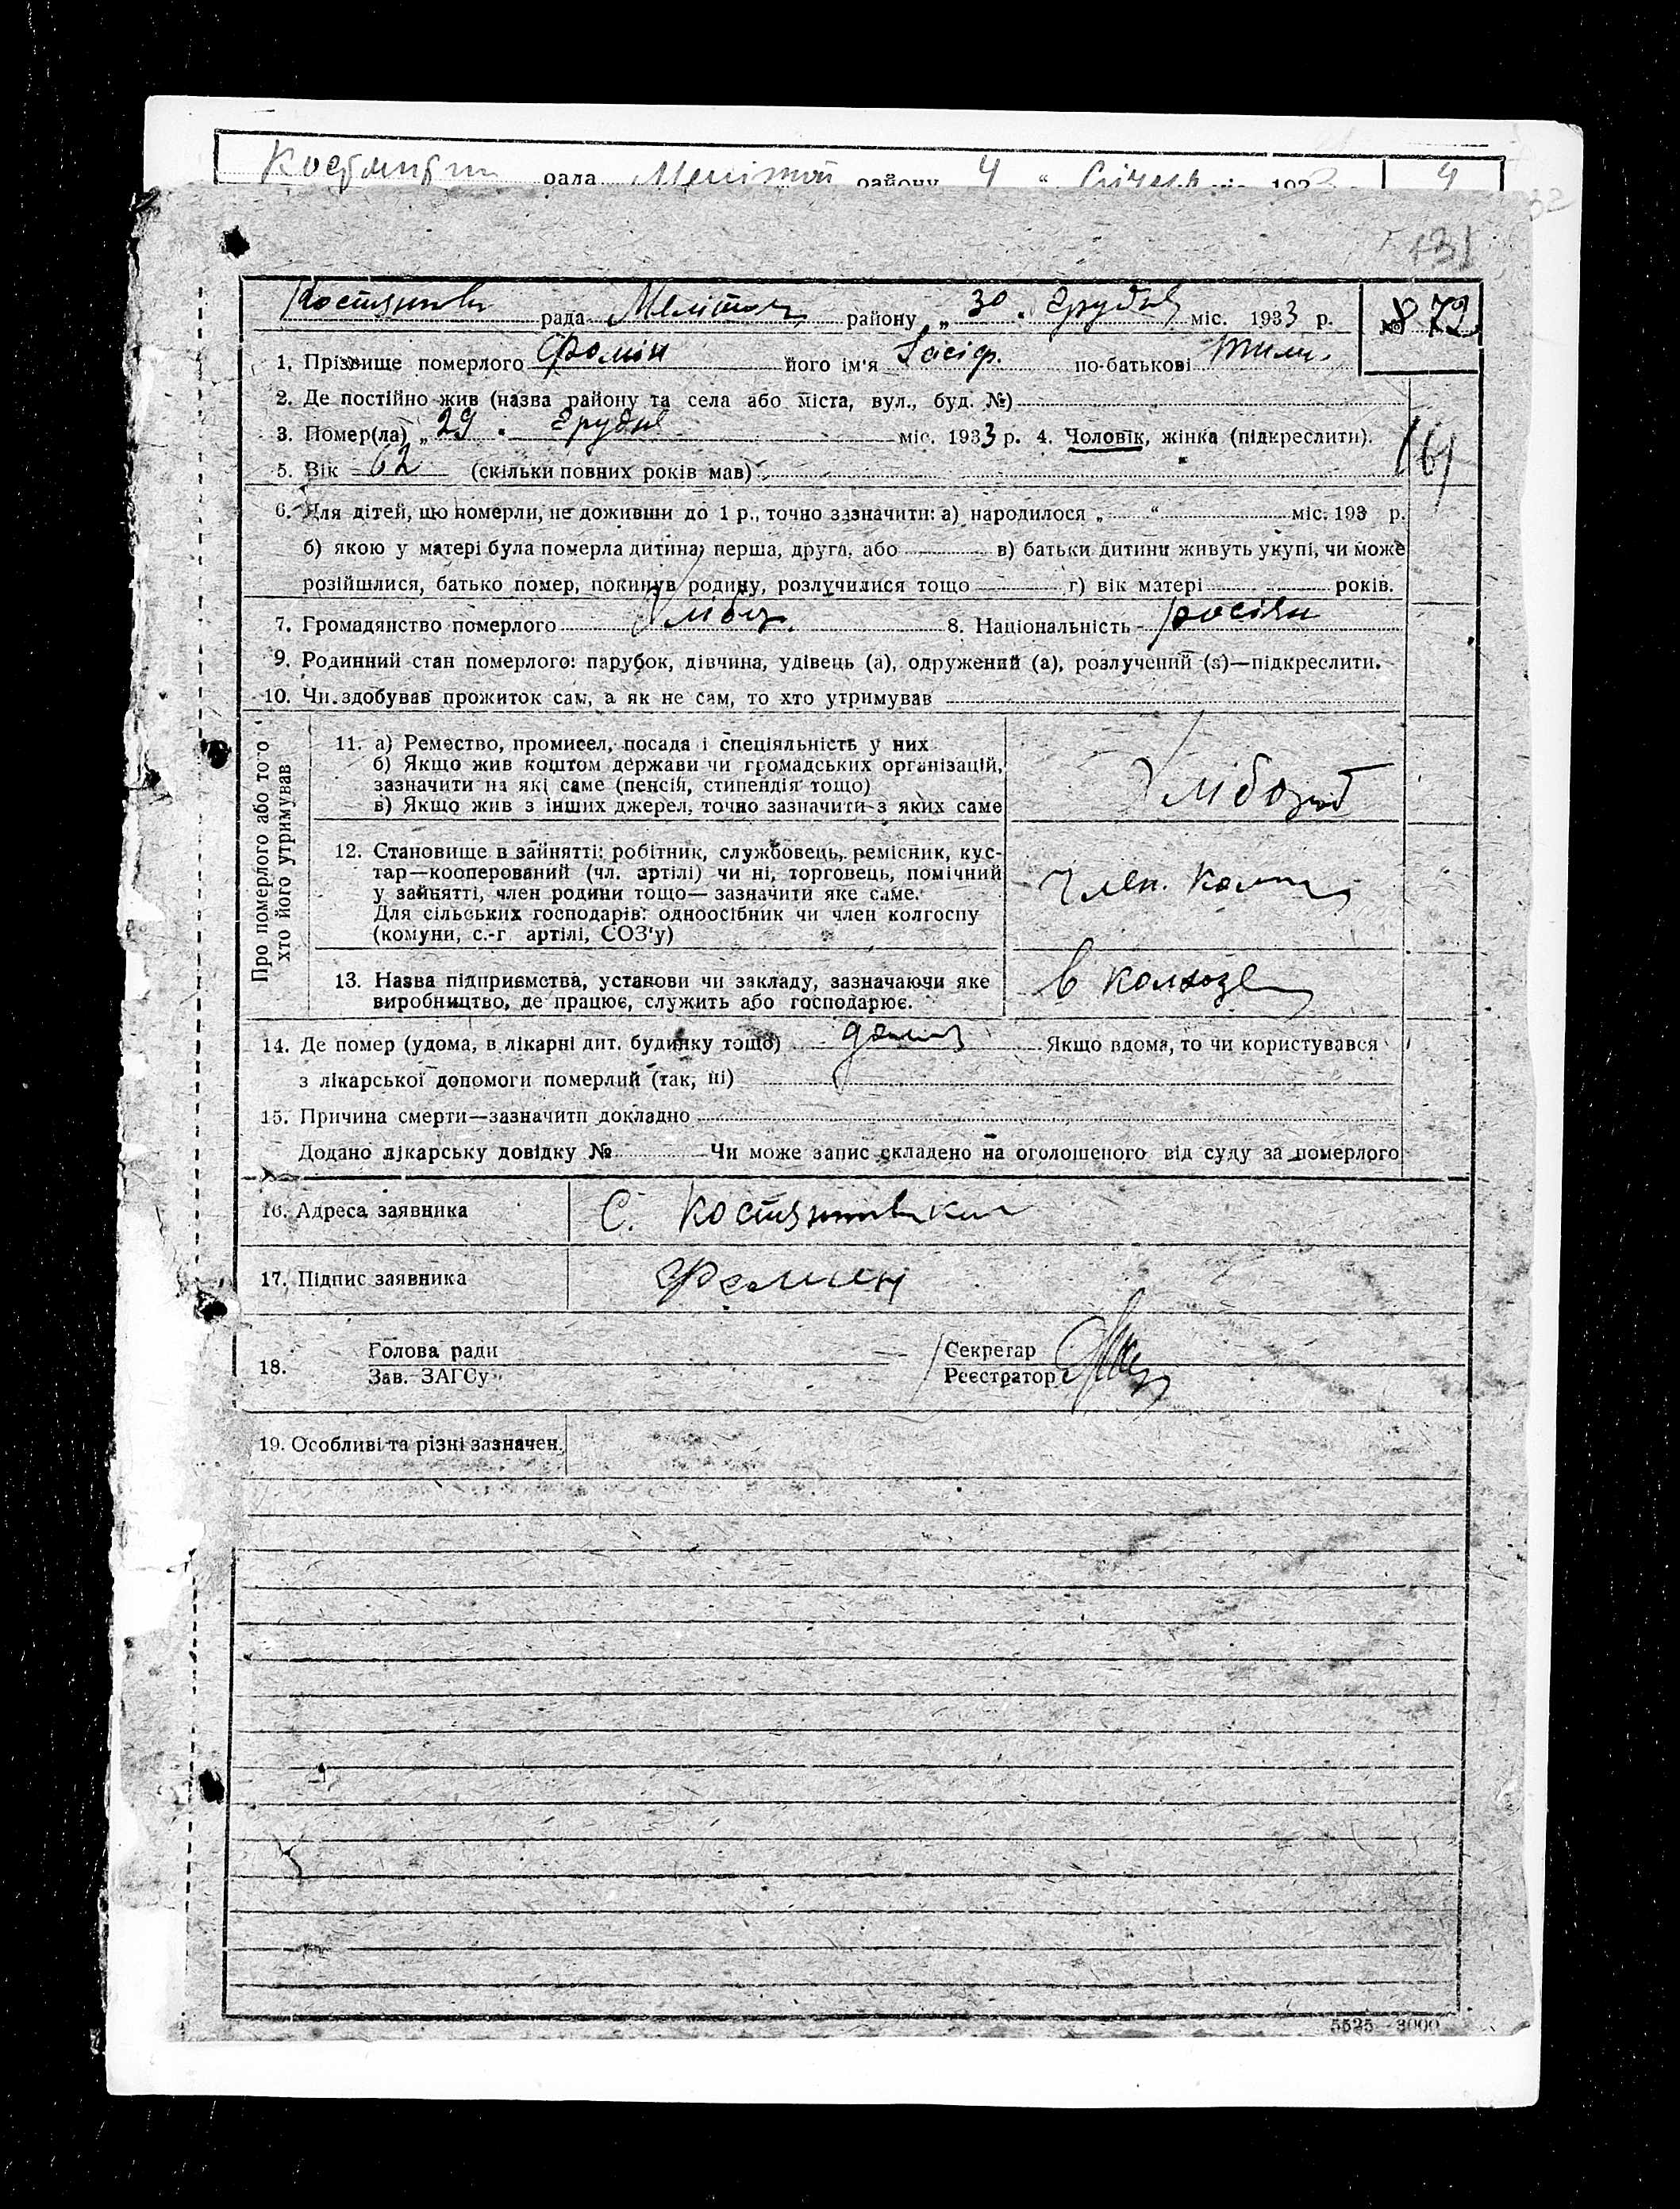 рада Меліт району 4 " Січня міс. 1933 4
131
Костянтів рада Мелітоп району „ 30 " Грудня міс. 1933 р. № 72
1. Прізвище померлого Фомін його ім'я Іосіф. по-батькові Тим.
2. Де постійно жив (назва району та села або міста, вул., буд. №)
3. Помер(ла) „ 29 " Грудня міс. 1933 р. 4. Чоловік, жінка (підкреслити).
5. Вік 62 (скільки повних років мав)
6. Для дітей, що померли, не доживши до 1 р., точно зазначити: а) народилося „ " міс. 193 р.
б) якою у матері була померла дитина; перша, друга, або в) батьки дитини живуть укупі, чи може
розійшлися, батько помер, покинув родину, розлучилися тощо г) вік матері років.
7. Громадянство померлого Хлібор. 8. Національність росіян
9. Родинний стан померлого: парубок, дівчина, удівець (а), одружений (а), розлучений (а)—підкреслити.
10. Чи здобував прожиток сам, а як не сам, то хто утримував
Про померлого або того
хто його утримував
11. а) Ремество, промисел, посада і спеціяльність у них
б) Якщо жив коштом держави чи громадських організацій,
зазначити на які саме (пенсія, стипендія тощо)
в) Якщо жив з інших джерел, точно зазначити з яких саме
Хлібороб
12. Становище в зайнятті: робітник, службовець, ремісник, кус-
тар—кооперований (чл. артілі) чи ні, торговець, помічний
у зайнятті, член родини тощо— зазначити яке саме.
Для сільських господарів: одноосібник чи член колгоспу
(комуни, с.-г артілі, СОЗ'у)
Член.
13. Назва підприємства, установи чи закладу, зазначаючи яке
виробництво, де працює, служить або господарює.
в колхозе
14. Де помер (удома, в лікарні дит. будинку тощо) дома Якщо вдома, то чи користувався
з лікарської допомоги померлий (так, ні)
15. Причина смерти—зазначити докладно
Додано лікарську довідку № Чи може запис складено на оголошеного від суду за померлого
16. Адреса заявника С. Костянтівка
17. Підпис заявника Фомин
18. Голова ради
Зав. ЗАГСу
Секретар
Реєстратор
19. Особливі та різні зазначен.
5525—3000